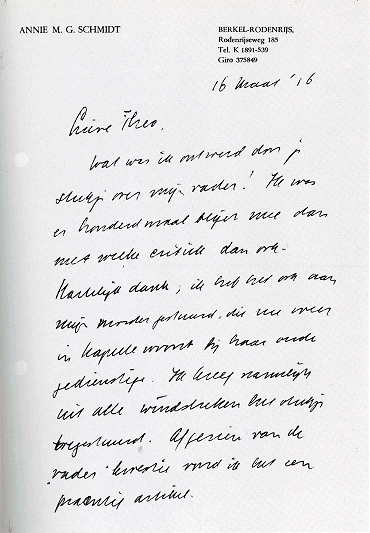 ANNIE M. G. SCHMIDT
BERKEL-RODENRIJS,
Rodenrijseweg 185
Tel. K 1891-539
Giro 375849
16 Maart '56
Lieve Theo,
Wat was ik ontroerd door je
stukje over mijn vader! Ik was
er honderdmaal blijer mee dan
met welke critiek dan ook.
Hartelijk dank, ik heb het ook aan
mijn moeder gestuurd, die nu weer
in Kapelle woont bij haar oude
gedienstige. Ik kreeg namelijk
uit alle windstreken het stukje
toegestuurd. Afgezien van de
vader kwestie vond ik het een
prachtig artikel.